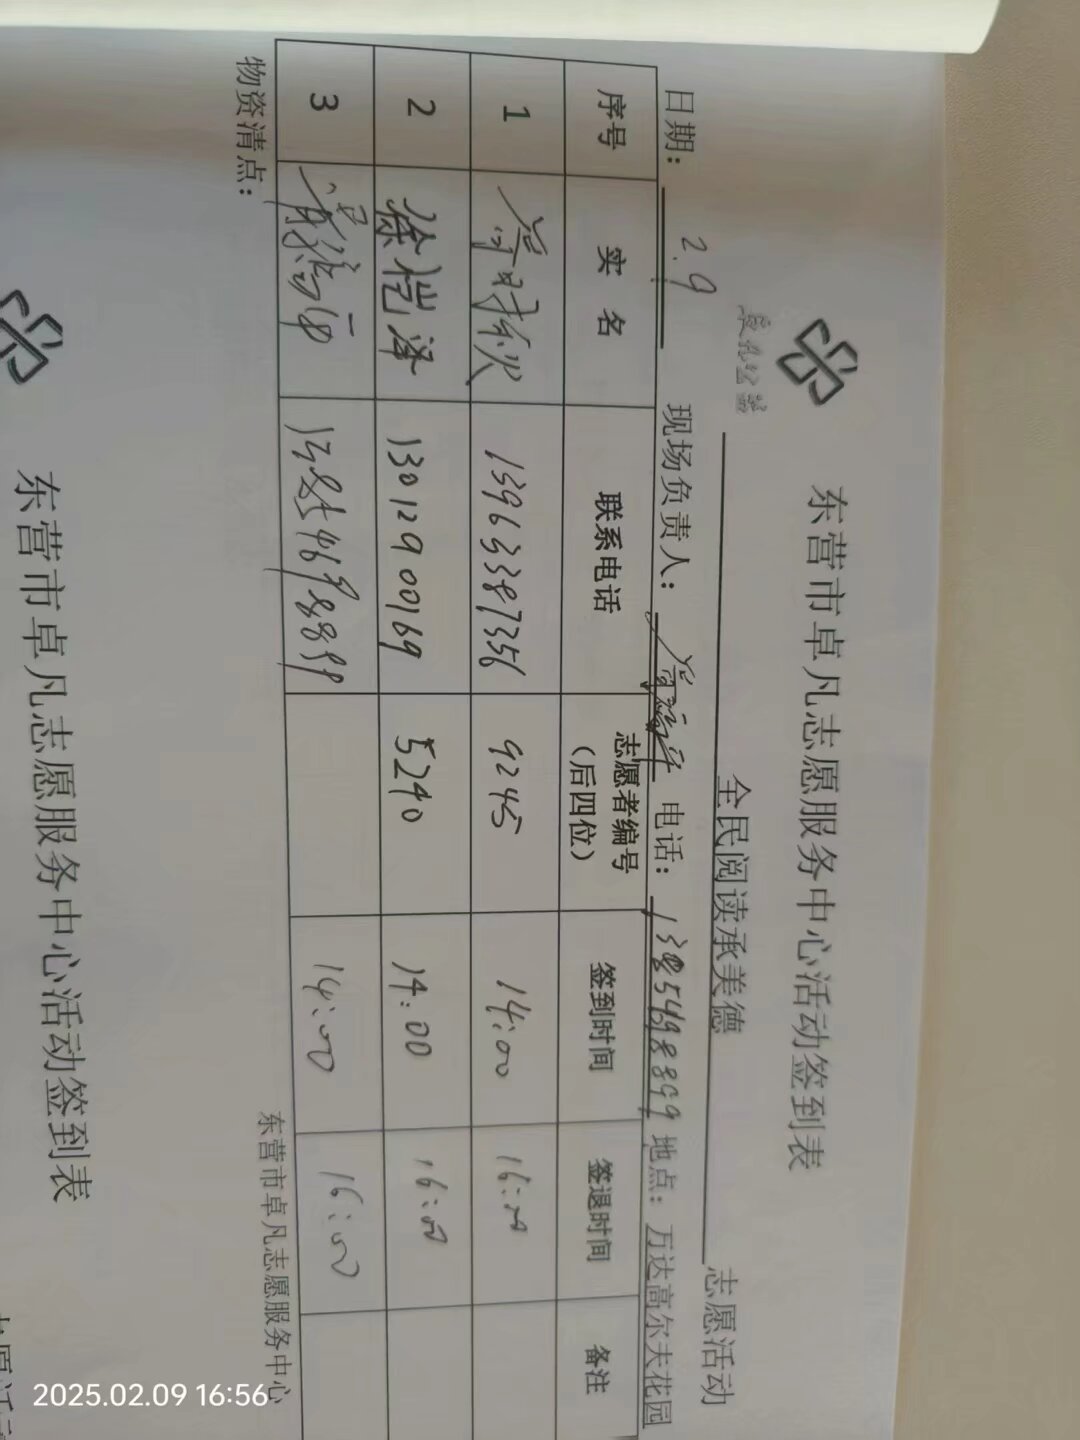 卓凡公益
东营市卓凡志愿服务中心活动签到表
全民阅读承美德 志愿活动
日期： 2.9 现场负责人： 电话：13854698899 地点：万达高尔夫花园
序号 实 名 联系电话 志愿者编号（后四位） 签到时间 签退时间 备注
1 13963387356 9245 14:00 16:00
2 徐恺泽 13012900169 5240 14:00 16:00
3 14:00 16:00
物资清点： 东营市卓凡志愿服务中心
东营市卓凡志愿服务中心活动签到表
2025.02.09 16:56